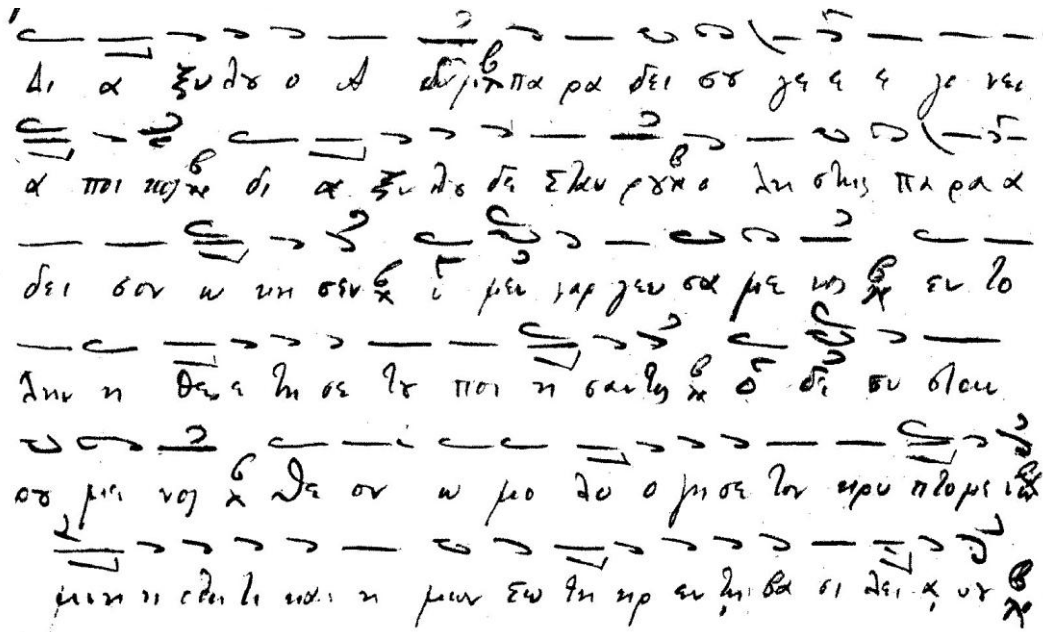 Δι α ξυ λȣ ο Α δαμ πα ρα δει σȣ γε ε ε γο νεν
α ποι κος δι α ξυ λȣ δε σταυ ρȣ ο λη στης πα ρα α
δει σον ω κη σεν ο μεν γαρ γευ σα με νος εν το
λην η θε ε τη σε τȣ ποι η σαντος ο δε συ σταυ
ρȣ με νος Θε ον ω μο λο ο γη σε τον κρυ πτο με νον
μνη η σθη τι και η μων Σω τηρ εν τη βα σι λει α σȣ